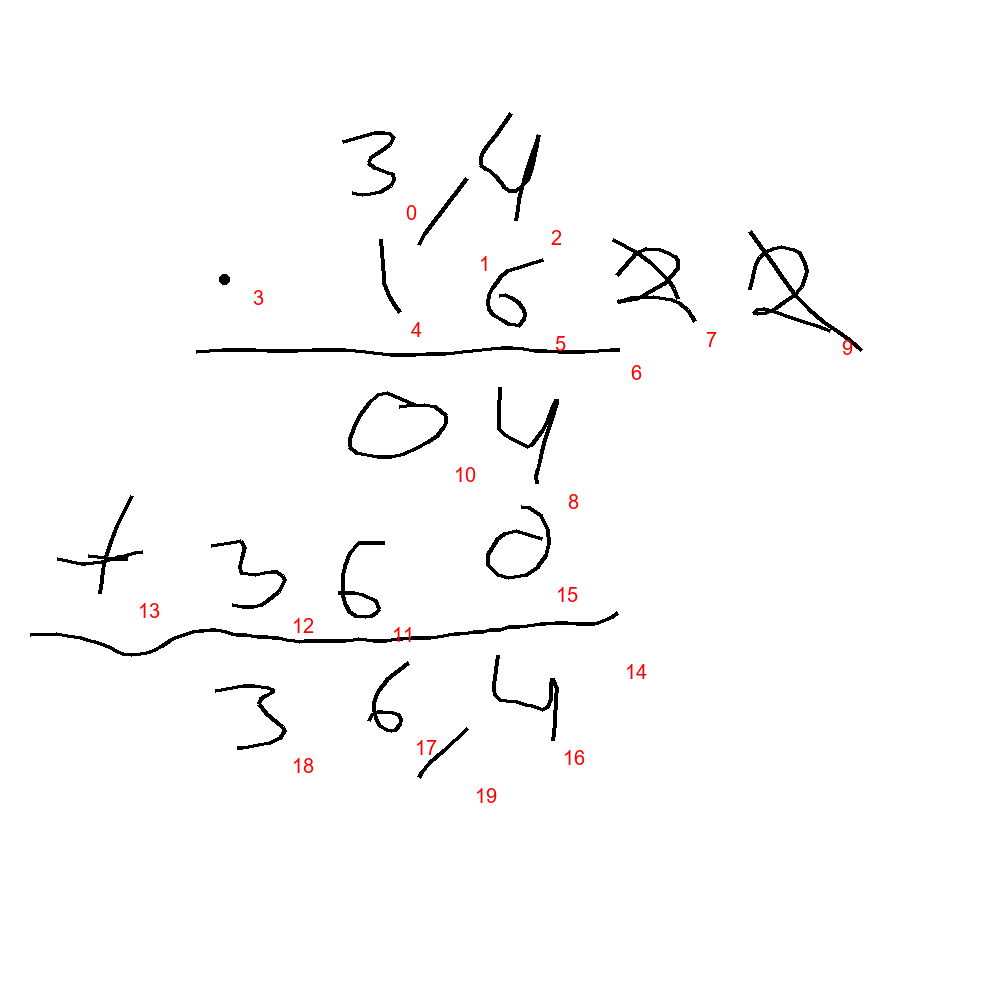 3 / 4
0 1 2
· 1 6 2 2
3 4 5 7 9
6
0 4
10 8
+ 3 6 0
13 12 11 15
14
3 6 / 4
18 17 19 16